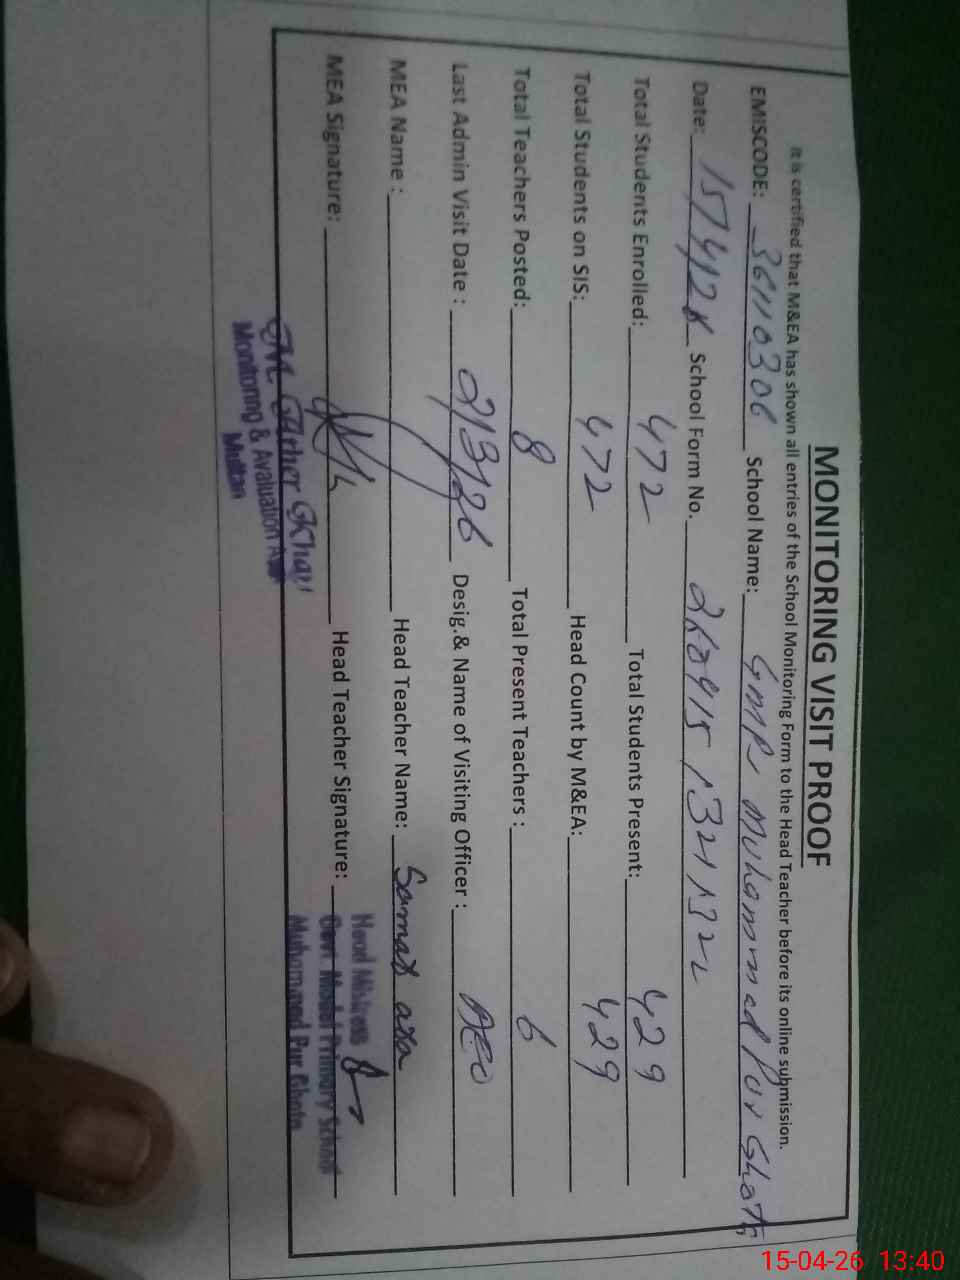 MONITORING VISIT PROOF
It is certified that M&EA has shown all entries of the School Monitoring Form to the Head Teacher before its online submission.
EMISCODE: 36110306 School Name: GMPS Muhammad Pur Ghota
Date: 15/4/26 School Form No. 260415 132113
Total Students Enrolled: 472 Total Students Present: 429
Total Students on SIS: 472 Head Count by M&EA: 429
Total Teachers Posted: 8 Total Present Teachers : 6
Last Admin Visit Date : 2/3/26 Desig.& Name of Visiting Officer : AEO
MEA Name : Head Teacher Name:
MEA Signature: Head Teacher Signature:
Head Mistress
Govt. Model Primary School
Muhammad Pur Ghota
Khan
Monitoring & Avaluation
Multan
15-04-26 13:40